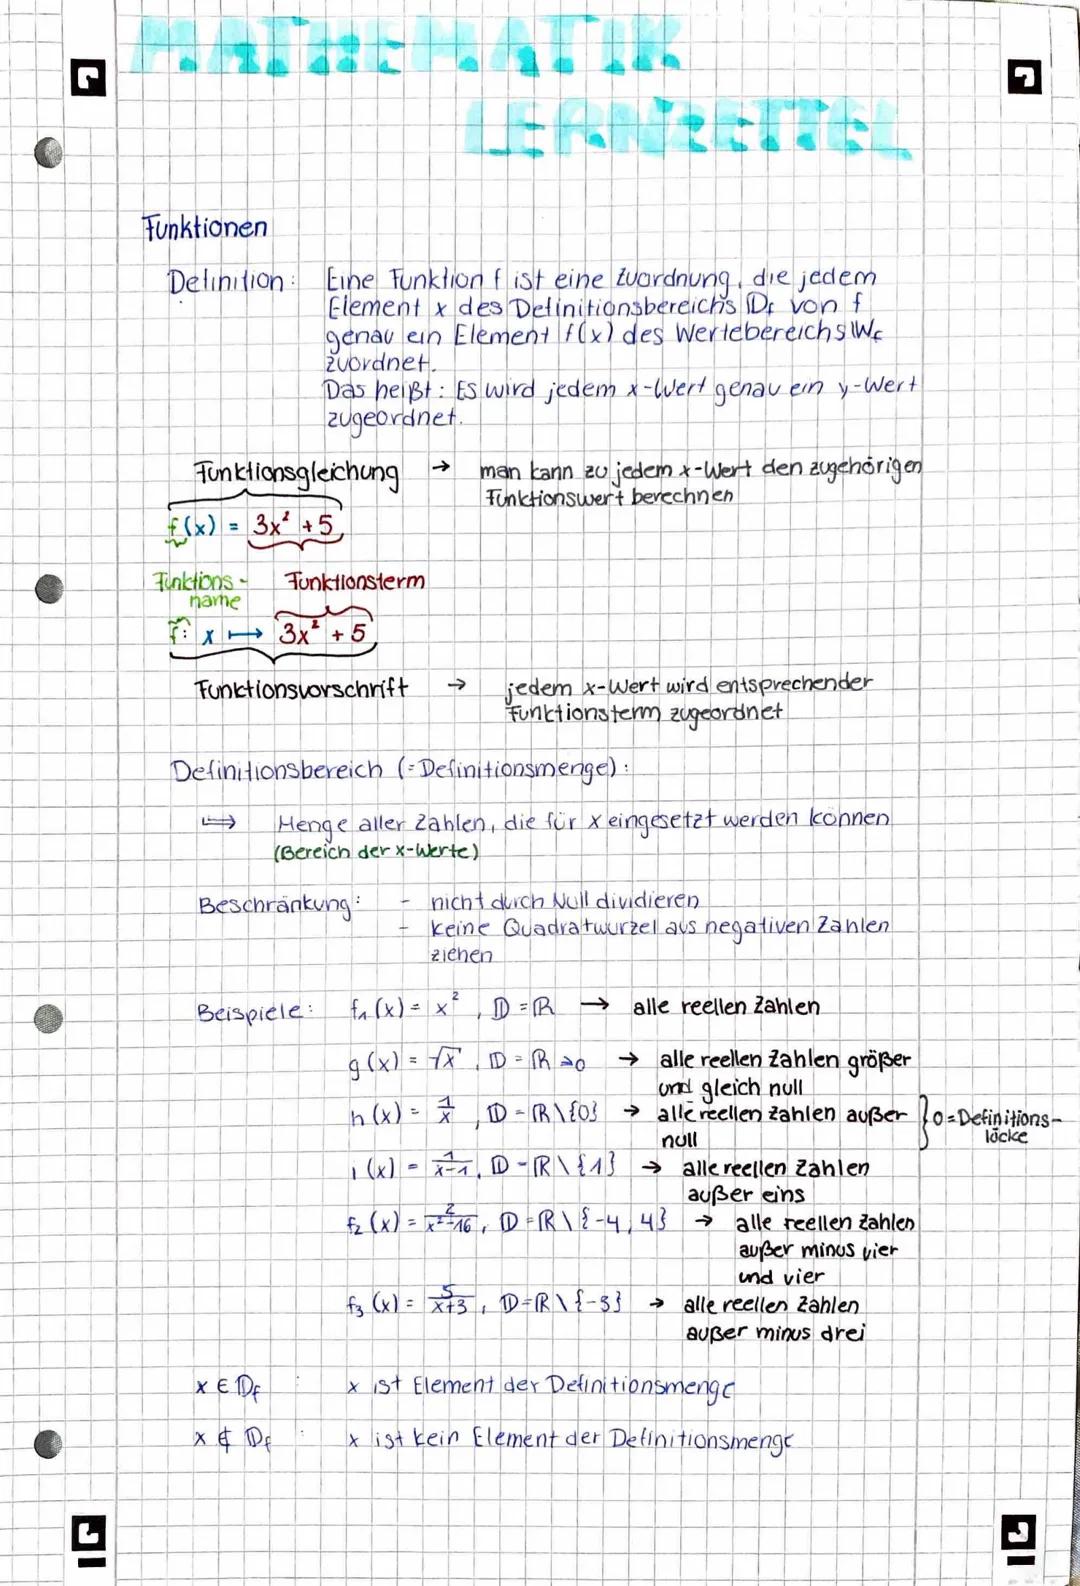 MATHEMATIK
LERNZETTEL
Funktionen
Definition: Eine Funktion f ist eine Zuordnung, die jedem
Element x des Definitionsbereichs 𝔻f von f
genau ein Element f(x) des Wertebereichs 𝕎f
zuordnet.
Das heißt: Es wird jedem x-Wert genau ein y-Wert
zugeordnet.
Funktionsgleichung → man kann zu jedem x-Wert den zugehörigen
Funktionswert berechnen
f(x) = 3x² + 5
Funktions- Funktionsterm
name
f: x ↦ 3x² + 5
Funktionsvorschrift → jedem x-Wert wird entsprechender
Funktionsterm zugeordnet
Definitionsbereich (=Definitionsmenge):
↦ Menge aller Zahlen, die für x eingesetzt werden können
(Bereich der x-Werte)
Beschränkung: - nicht durch Null dividieren
- keine Quadratwurzel aus negativen Zahlen
ziehen
Beispiele: f₁(x) = x², 𝔻 = ℝ → alle reellen Zahlen
g(x) = √x, 𝔻 = ℝ ≥0 → alle reellen Zahlen größer
und gleich null
h(x) = 1/x, 𝔻 = ℝ\{0} → alle reellen Zahlen außer } 0 = Definitions-
null lücke
i(x) = 1/x-1, 𝔻 = ℝ\{1} → alle reellen Zahlen
außer eins
f₂(x) = 2/x²-16, 𝔻 = ℝ\{-4, 4} → alle reellen Zahlen
außer minus vier
und vier
f₃(x) = 5/x+3, 𝔻 = ℝ\{-3} → alle reellen Zahlen
außer minus drei
x ∈ 𝔻f : x ist Element der Definitionsmenge
x ∉ 𝔻f : x ist kein Element der Definitionsmenge